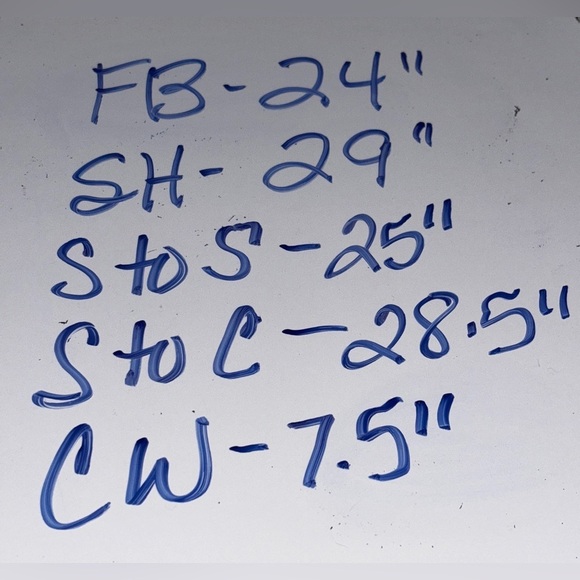 FB - 24"
SH - 29"
S to S - 25"
S to C - 28.5"
CW - 7.5"